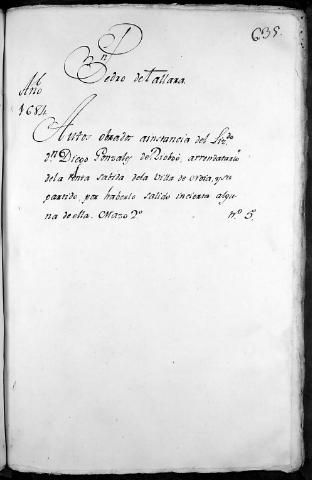 635.
Dn
Pedro de Tallara.
Año
1684.
Autos obrados a instancia del Lizdo
dn Diego Gonzales de arrendatario
de la renta salida de la Villa de y su
partido, por haberle salido incierta algu
na de ella. Mazo 2º nº 5.